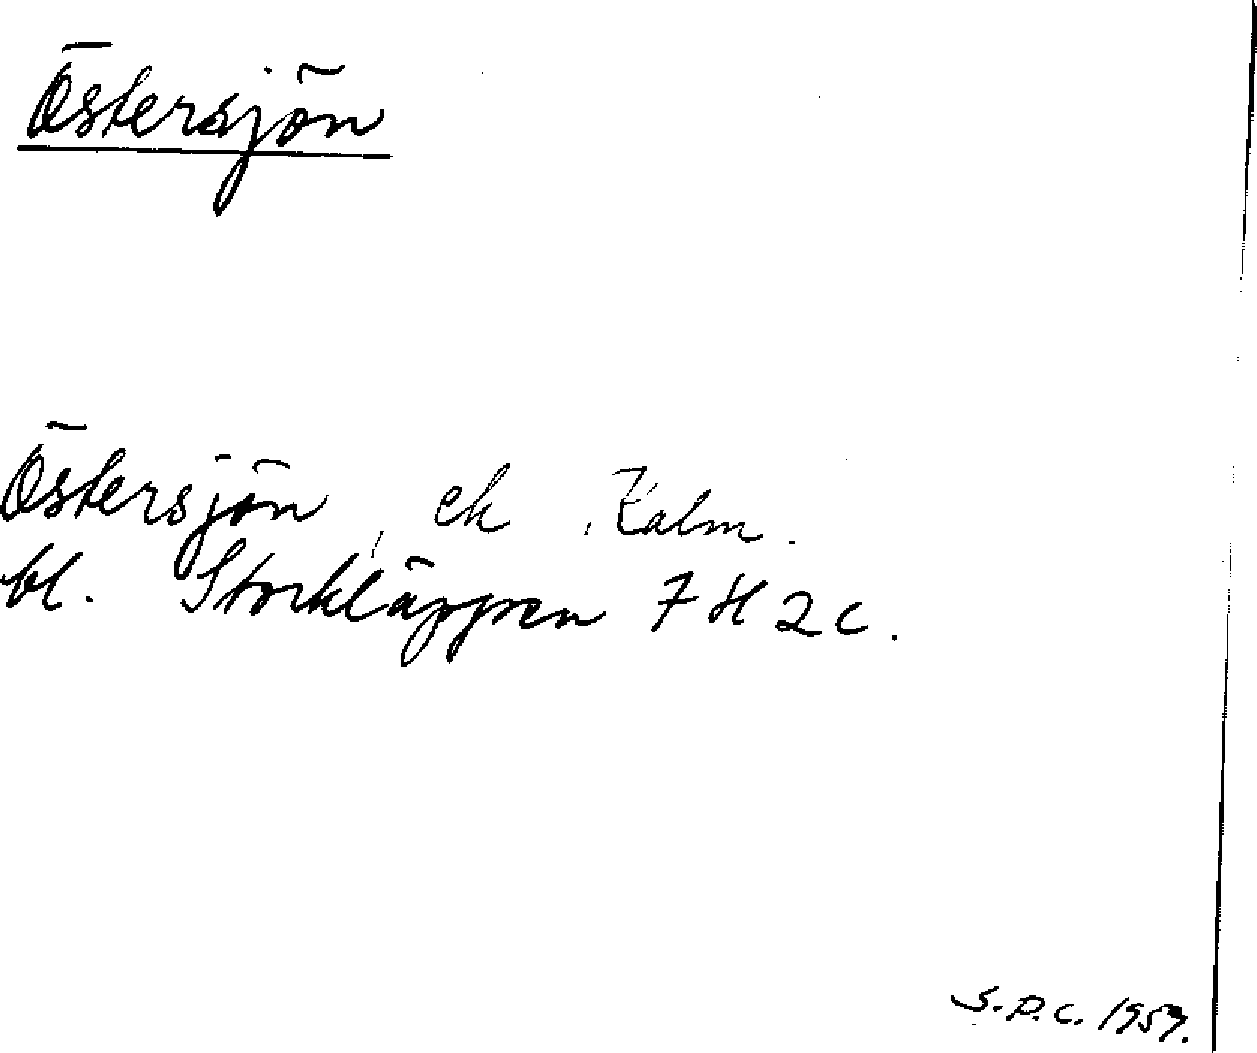 Östersjön
Östersjön, ek, Kalm.
bl. Storkläppen 7 H 2 c.
S.D.C. 1959.